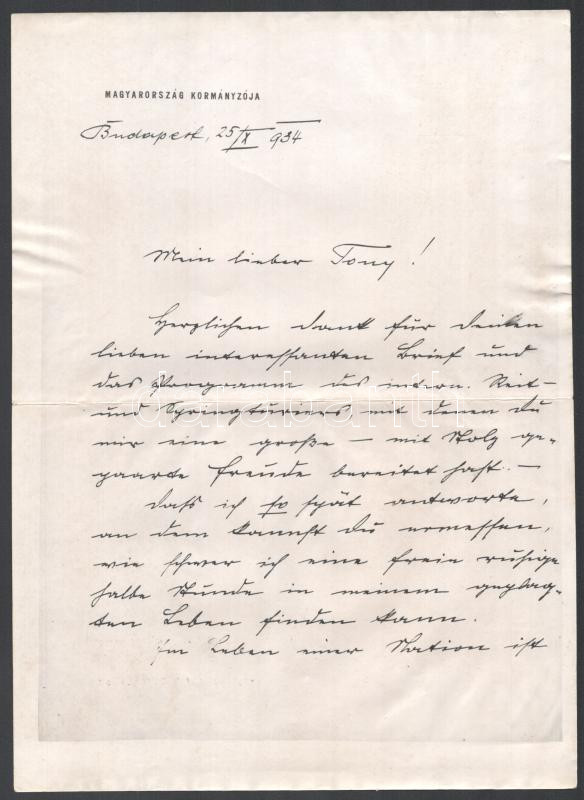 MAGYARORSZÁG KORMÁNYZÓJA
Budapest, 25/X 934
Mein lieber Tony!
Herzlichen Dank für Deinen
lieben interessanten Brief und
das Programm des intern. Reit-
und Springturiers, mit denen Du
mir eine große – mit Stolz ge-
paarte Freude bereitet hast. –
Dass ich so spät antworte,
an dem kannst Du ermessen,
wie schwer ich eine freie ruhige
halbe Stunde in meinem geplag-
ten Leben finden kann.
Im Leben einer Nation ist
darabanth